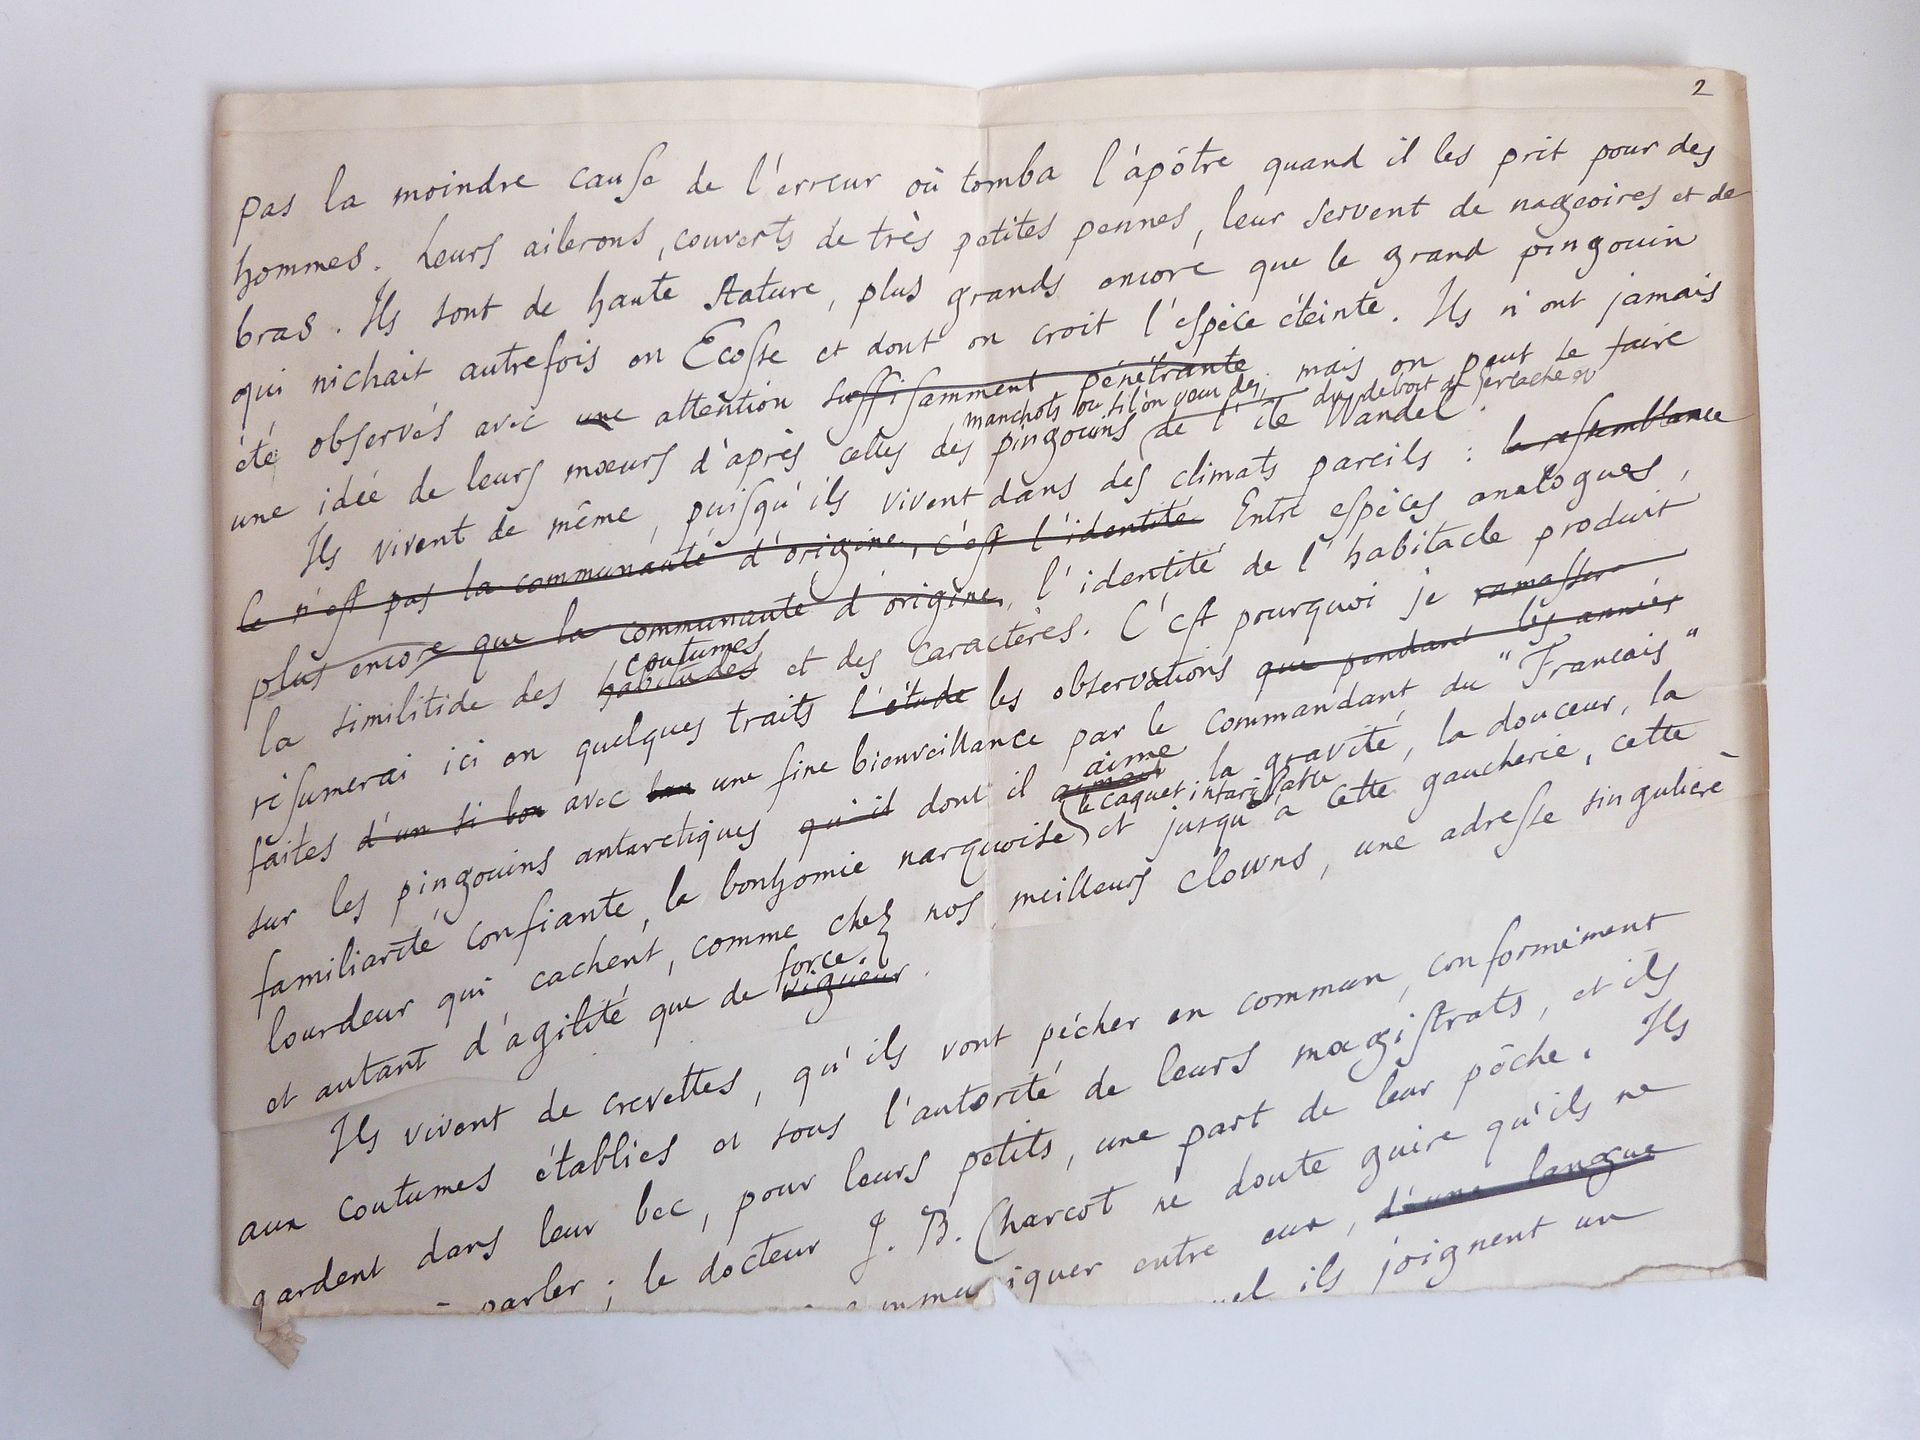 2
pas la moindre cause de l'erreur où tomba l'apôtre quand il les prit pour des
hommes. Leurs ailerons, couverts de très petites pennes, leur servent de nageoires et de
bras. Ils sont de haute stature, plus grands encore que le grand pingouin
qui nichait autrefois en Ecosse et dont on croit l'espèce éteinte. Ils n'ont jamais
été observés avec une attention suffisamment pénétrante, mais on peut se faire
manchots ou si l'on veut des du detroit de Gerlache ou
une idée de leurs mœurs d'après celles des pingouins de l'île Wandel.
Ils vivent de même, puisqu'ils vivent dans des climats pareils : la ressemblance
Ce n'est pas la communauté d'origine, c'est l'identité Entre espèces analogues,
plus encore que la communauté d'origine, l'identité de l'habitacle produit
coutumes
la similitide des habitudes et des caractères. C'est pourquoi je ramasser
résumerai ici en quelques traits l'étude les observations que pendant les années
faites d'un si bon avec une fine bienveillance par le commandant du "Français"
aime
sur les pingouins antarctiques qui il dont il la gravité, la douceur, la
le caquet intarissable
familiarité confiante, la bonhomie narquoise et jusqu'à cette gaucherie, cette
lourdeur qui cachent, comme chez nos meilleurs clowns, une adresse singulière
force
et autant d'agilité que de vigueur.
Ils vivent de crevettes, qu'ils vont pécher en commun, conformément
aux coutumes établies et sous l'autorité de leurs magistrats, et ils
gardent dans leur bec, pour leurs petits, une part de leur pêche. Ils
parler ; le docteur J. B. Charcot ne doute guire qu'ils ne
communiquer entre eux, d'une langue
ils joignent un